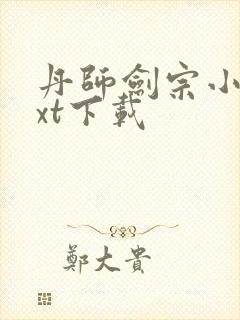 丹師劍宗小
xt下載
鄭大貴